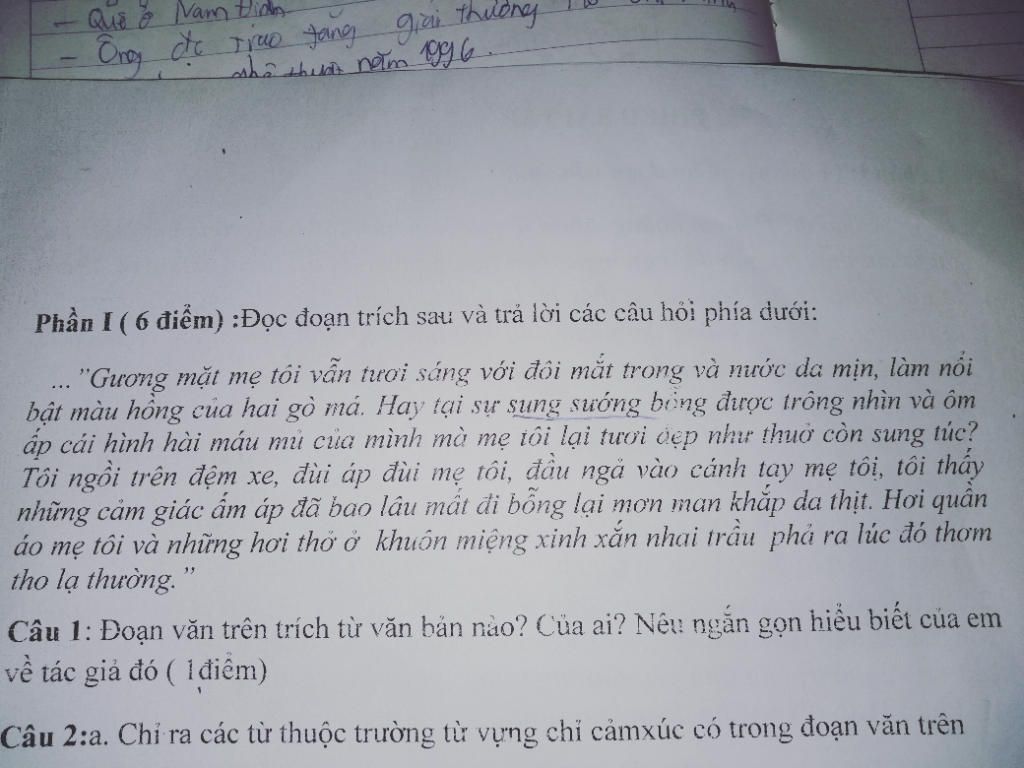 - Quê ở Nam Định
- Ông đc trao tặng giải thưởng
năm 1996.
Phần I ( 6 điểm) :Đọc đoạn trích sau và trả lời các câu hỏi phía dưới:
... "Gương mặt mẹ tôi vẫn tươi sáng với đôi mắt trong và nước da mịn, làm nổi
bật màu hồng của hai gò má. Hay tại sự sung sướng bỗng được trông nhìn và ôm
ấp cái hình hài máu mủ của mình mà mẹ tôi lại tươi đẹp như thuở còn sung túc?
Tôi ngồi trên đệm xe, đùi áp đùi mẹ tôi, đầu ngả vào cánh tay mẹ tôi, tôi thấy
những cảm giác ấm áp đã bao lâu mất đi bỗng lại mơn man khắp da thịt. Hơi quần
áo mẹ tôi và những hơi thở ở khuôn miệng xinh xắn nhai trầu phả ra lúc đó thơm
tho lạ thường."
Câu 1: Đoạn văn trên trích từ văn bản nào? Của ai? Nêu ngắn gọn hiểu biết của em
về tác giả đó ( 1điểm)
Câu 2:a. Chỉ ra các từ thuộc trường từ vựng chỉ cảmxúc có trong đoạn văn trên